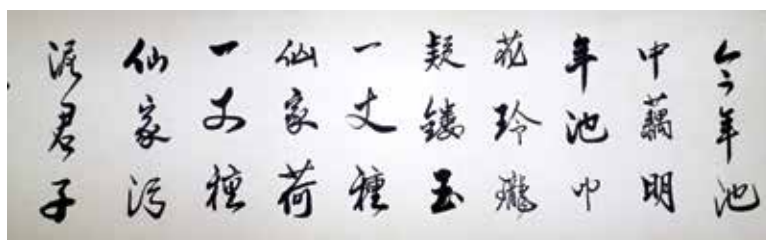 今年池
中藕明
年池中
花玲瓏
疑鏤玉
一丈種
仙家荷
一丈種
仙家污
泥君子